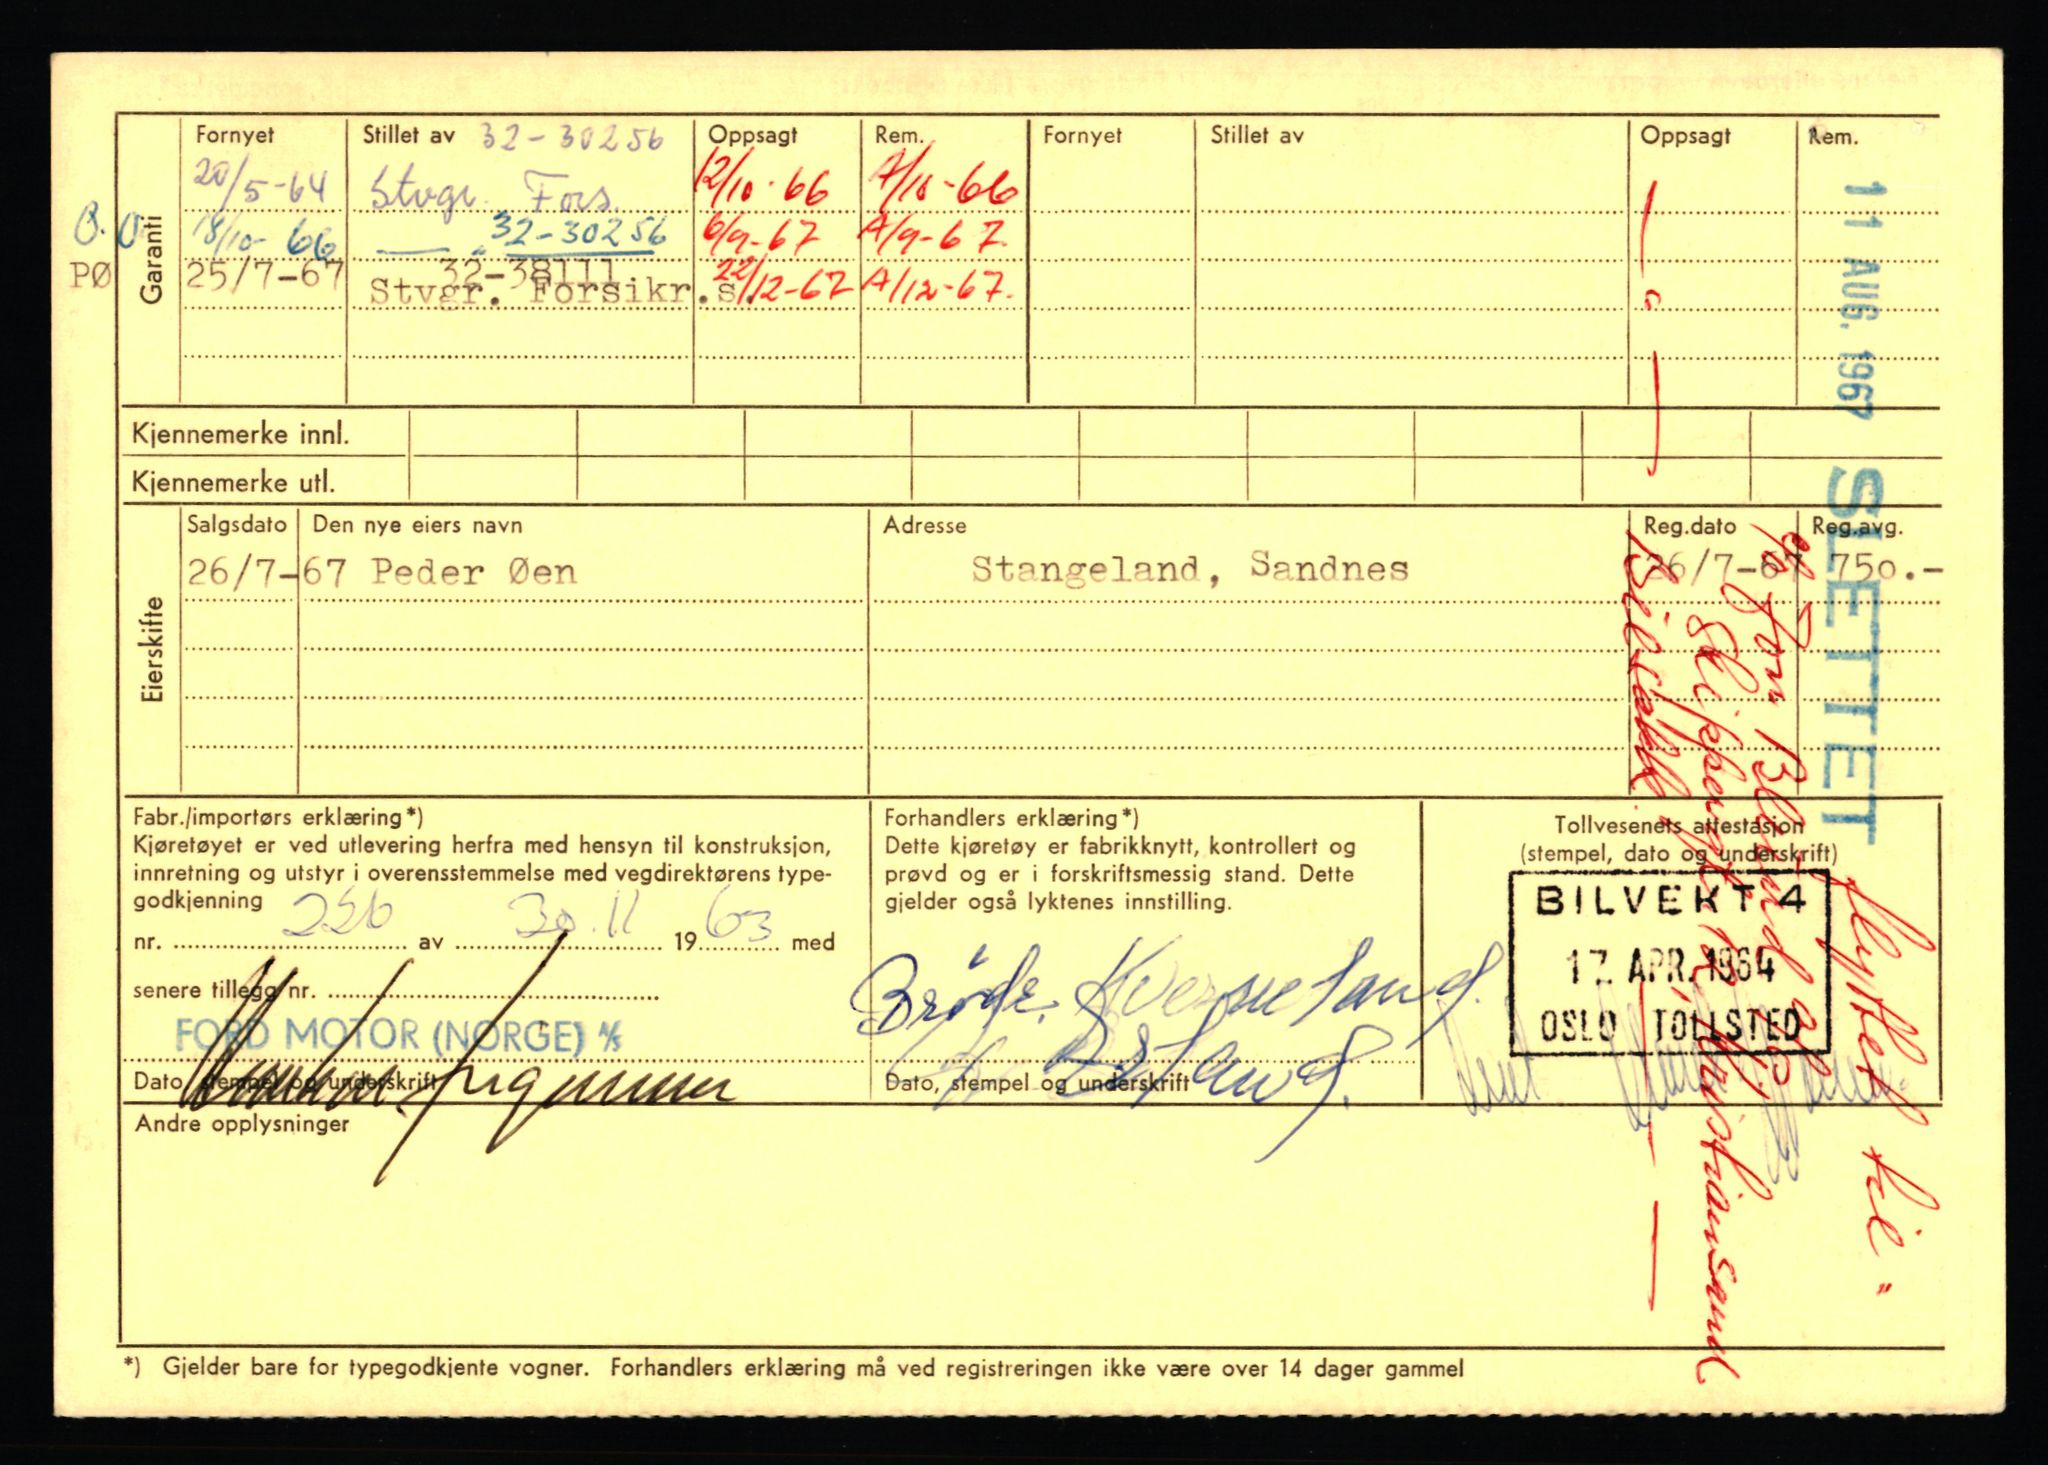 Fornyet Stillet av 32-30256 Oppsagt Rem. Fornyet Stillet av Oppsagt Rem.
20/5-64 Stvgr. Fors. 12/10-66 A/10-66
18/10-66 —— " 32-30256 6/9-67 A/9-67.
PØ 25/7-67 32-38111 22/12-67 A/12-67.
Stvgr. Forsikr.s.
Garanti
Kjennemerke innl.
Kjennemerke utl.
Eierskifte
Salgsdato Den nye eiers navn Adresse Reg.dato Reg.avg.
26/7-67 Peder Øen Stangeland, Sandnes 26/7-67 750.-
11 AUG. 1967 SLETTET
flyttet til
Kristiansand
Fabr./importørs erklæring*)
Kjøretøyet er ved utlevering herfra med hensyn til konstruksjon,
innretning og utstyr i overensstemmelse med vegdirektørens type-
godkjenning
nr. 226 av 30.11 1963 med
senere tillegg nr.
FORD MOTOR (NORGE) A/S
Dato, stempel og underskrift
Forhandlers erklæring*)
Dette kjøretøy er fabrikknytt, kontrollert og
prøvd og er i forskriftsmessig stand. Dette
gjelder også lyktenes innstilling.
Brødr. Kverneland.
Dato, stempel og underskrift
Tollvesenets attestasjon
(stempel, dato og underskrift)
BILVEKT 4
17. APR. 1964
OSLO TOLLSTED
Andre opplysninger
*) Gjelder bare for typegodkjente vogner. Forhandlers erklæring må ved registreringen ikke være over 14 dager gammel